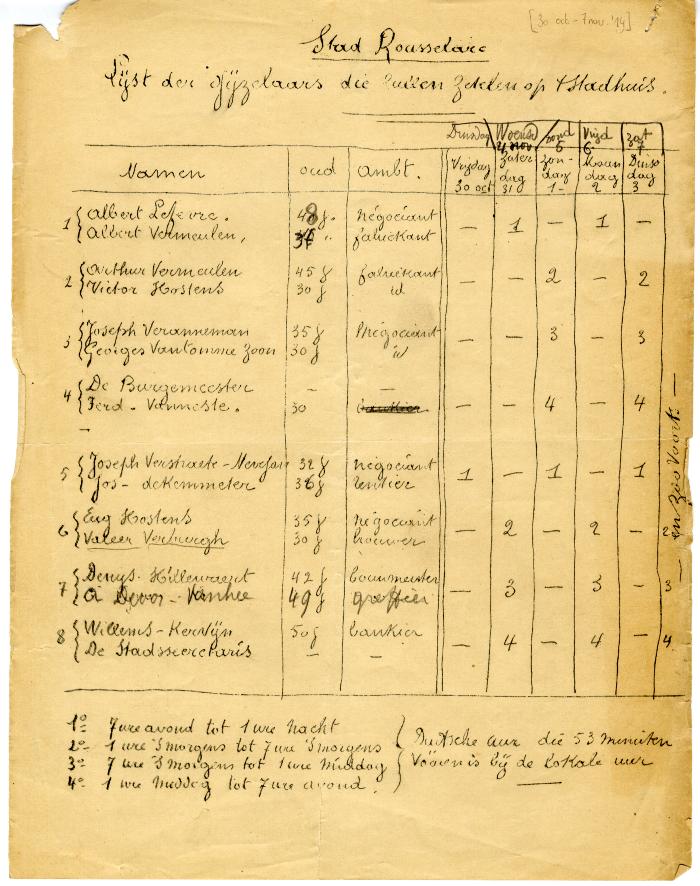 [30 oct - 7 nov. '14]
Stad Rousselare
Lijst der Gijzelaars die zullen Zetelen op t Stadhuis.
Dinsdag Woensd 4 nov. 5 Vrijd 6 zat 7
Namen oud ambt. Vrijdag 30 oct Zaterdag 31 Zondag 1 Maandag 2 Dinsdag 3
1 { Albert Lefevre. 48 j. négociant — 1 — 1 —
Albert Vermeulen, 37 " fabriekant
2 { Arthur Vermeulen 45 j fabriekant — — 2 — 2
Victor Hostens 30 j id
3 { Joseph Veranneman 35 j négociant — — 3 — 3
Georges Vantomme Zoon 30 j id
4 { De Burgemeester — —
Ferd. Vanneste. 30 bankier — — 4 — 4
—
5 { Joseph Verstraete - 32 j négociant 1 — 1 — 1
Jos - deKemmeter 36 j rentier
6 { Eug Hostens 35 j négociant — 2 — 2 — 2
Valeer Verburgh 30 j brouwer
7 { Denys - Hillewaert 42 j bouwmeester — 3 — 3 — 3
49 j greffier
8 { Willems - Kervijn 50 j bankier — 4 — 4 — 4
De Stadssecretaris — —
en zoo voort.
1° 7 ure avond tot 1 ure Nacht
2° 1 ure 's morgens tot 7 ure 's morgens
3° 7 ure 's morgens tot 1 ure Middag
4° 1 ure Middag tot 7 ure avond.
Duitsche uur die 53 minuten
Vooren is bij de lokale uur